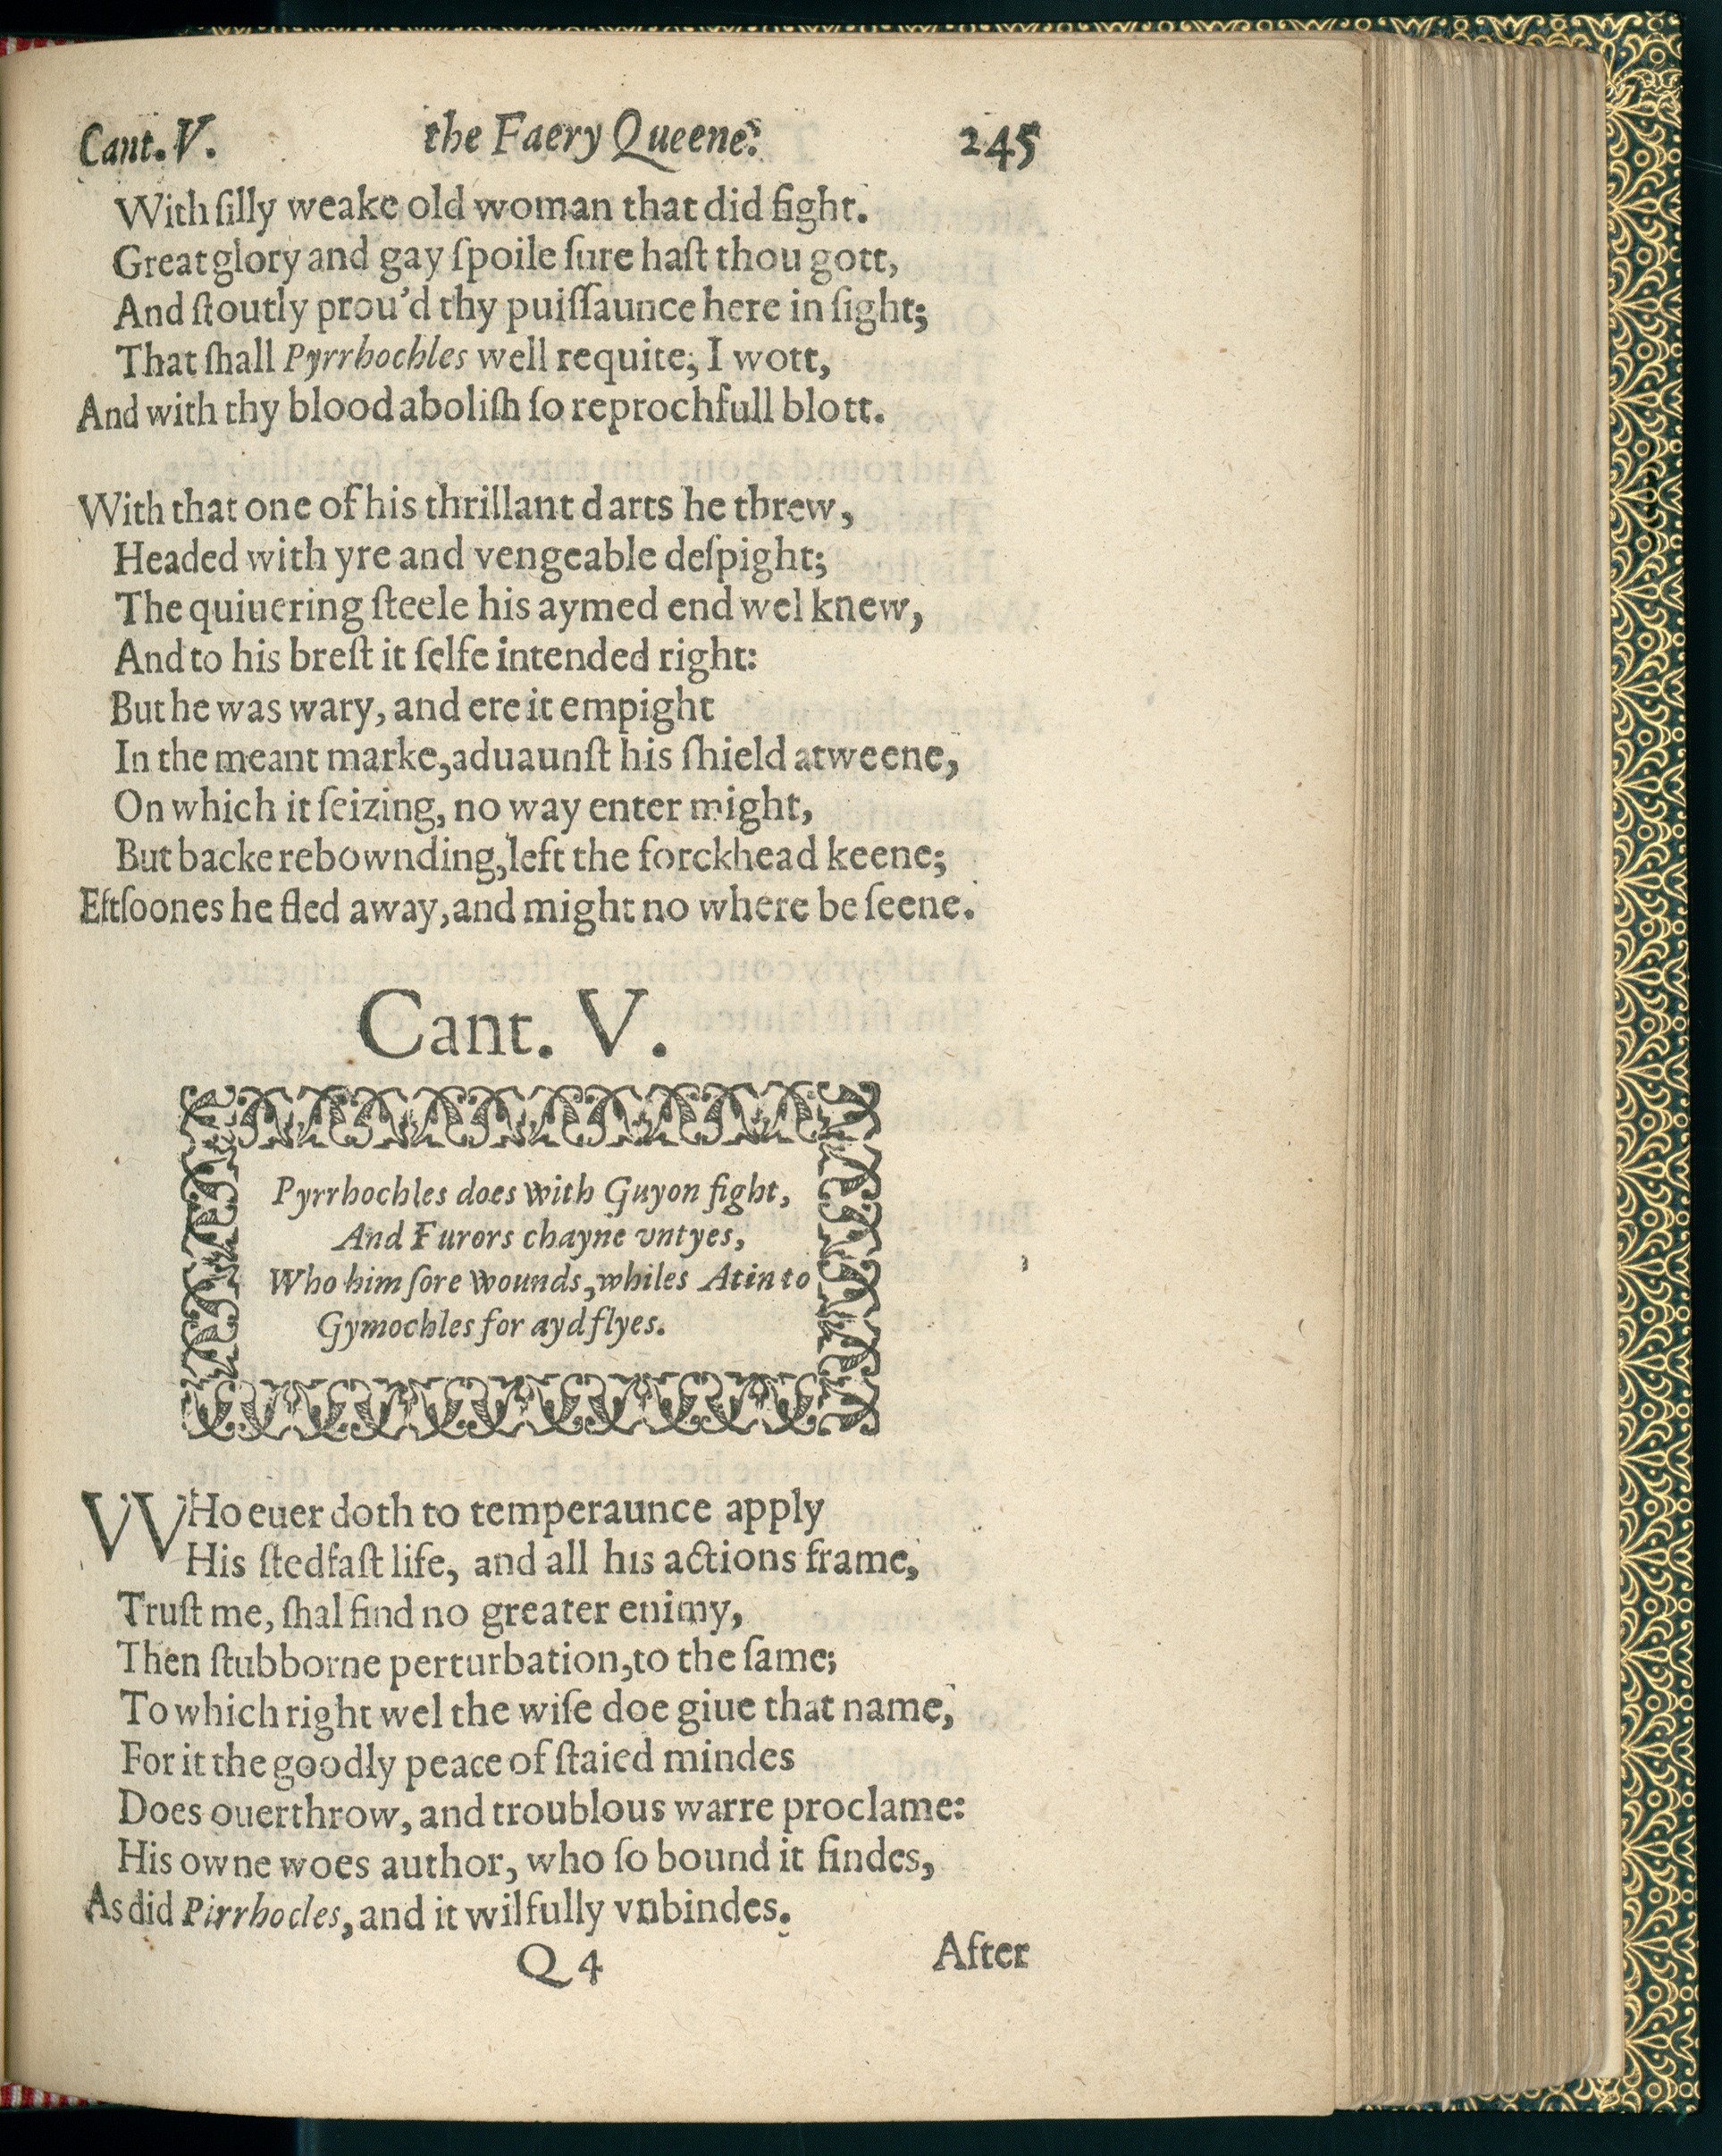 Cant. V. the Faery Queene. 245
With ſilly weake old woman that did fight.
Great glory and gay ſpoile ſure haſt thou gott,
And ſtoutly prou'd thy puiſſaunce here in ſight;
That ſhall Pyrrhochles well requite, I wott,
And with thy blood aboliſh ſo reprochfull blott.
With that one of his thrillant darts he threw,
Headed with yre and vengeable deſpight;
The quiuering ſteele his aymed end wel knew,
And to his breſt it ſelfe intended right:
But he was wary, and ere it empight
In the meant marke, aduaunſt his ſhield atweene,
On which it ſeizing, no way enter might,
But backe rebownding, left the forckhead keene;
Eftſoones he fled away, and might no where be ſeene.
Cant. V.
Pyrrhochles does with Guyon fight,
And Furors chayne vntyes,
Who him ſore wounds, whiles Atin to
Gymochles for ayd flyes.
WHo euer doth to temperaunce apply
His ſtedfaſt life, and all his actions frame,
Truſt me, ſhal find no greater enimy,
Then ſtubborne perturbation, to the ſame;
To which right wel the wiſe doe giue that name,
For it the goodly peace of ſtaied mindes
Does ouerthrow, and troublous warre proclame:
His owne woes author, who ſo bound it findes,
As did Pirrhocles, and it wilfully vnbindes.
Q 4 After